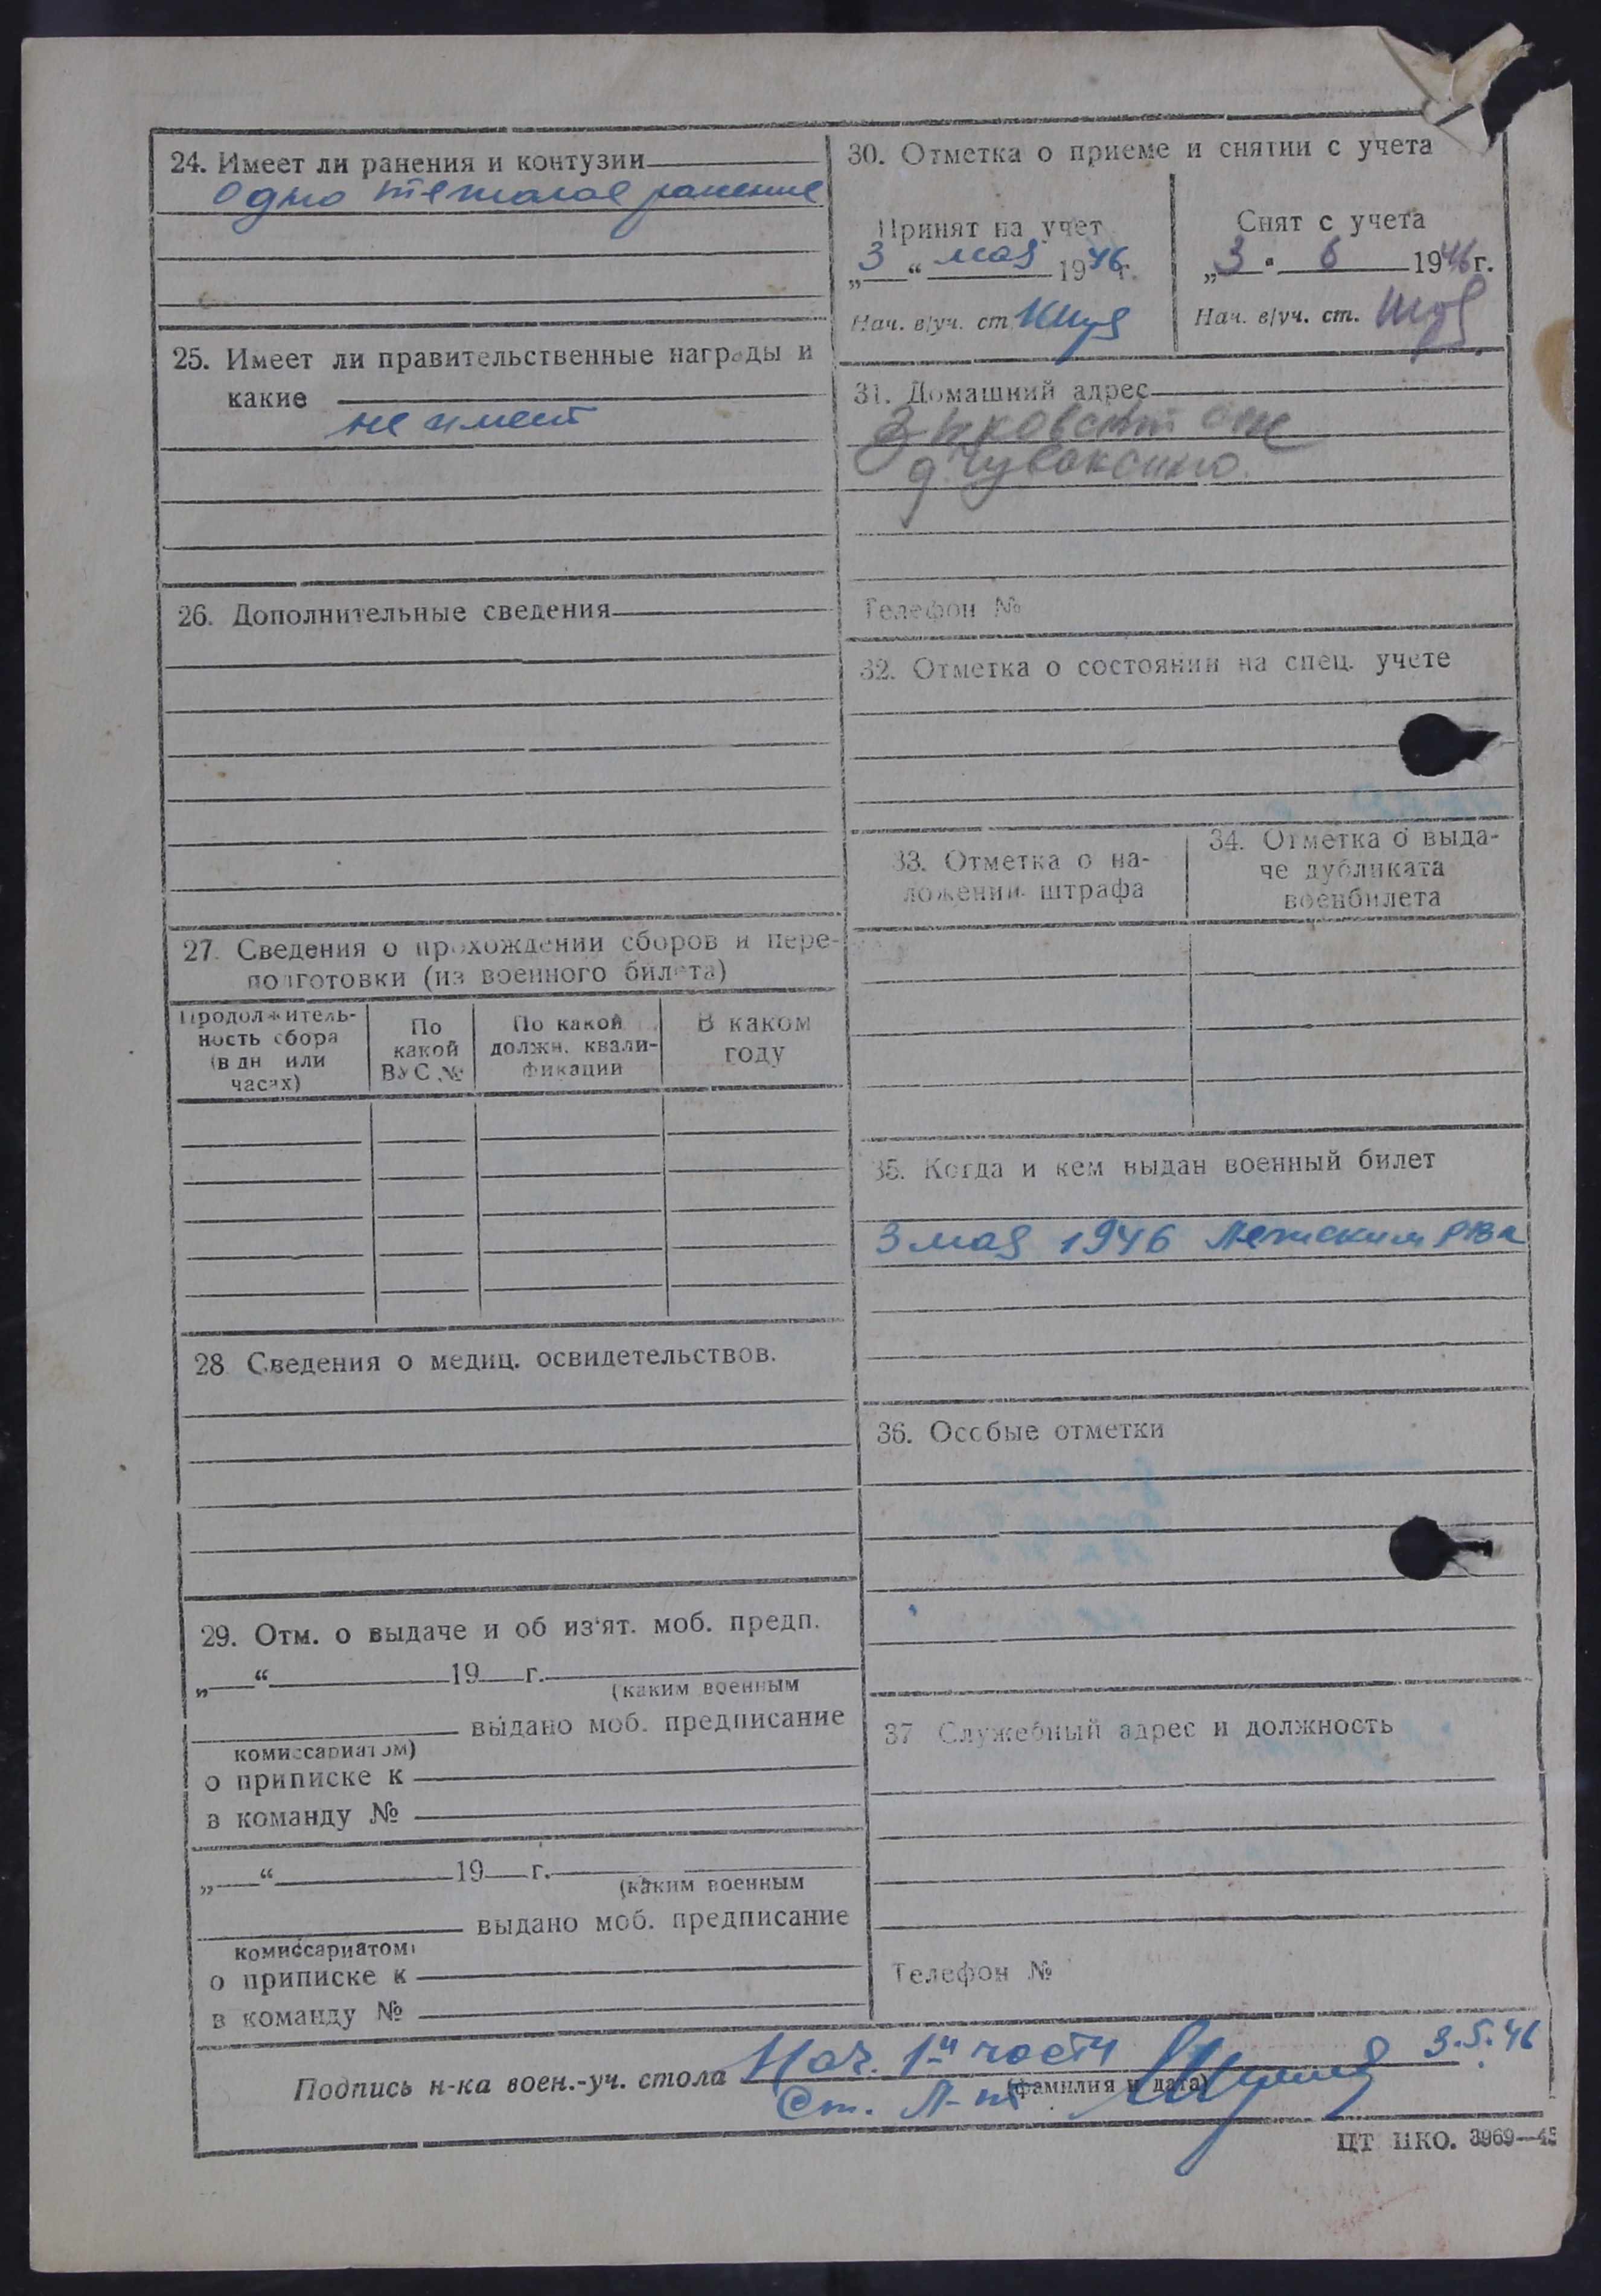 24. Имеет ли ранения и контузии
одно тяжолое ранение
25. Имеет ли правительственные награды и
какие
не имеет
26. Дополнительные сведения
27. Сведения о прохождении сборов и пере-
подготовки (из военного билета)
Продолжитель-
ность сбора
(в дн или
часах)
По
какой
ВУС №
По какой
должн. квали-
фикации
В каком
году
28. Сведения о медиц. освидетельствов.
29. Отм. о выдаче и об из‘ят. моб. предп.
„ “ 19 г.
(каким военным
выдано моб. предписание
комиссариатом)
о приписке к
в команду №
„ “ 19 г.
(каким военным
выдано моб. предписание
комиссариатом)
о приписке к
в команду №
30. Отметка о приеме и снятии с учета
Принят на учет
„3“ мая 1946 г.
Нач. в/уч. ст.
Снят с учета
„3“ 6 1946 г.
Нач. в/уч. ст.
31. Домашний адрес
д. Чуваксино.
Телефон №
32. Отметка о состоянии на спец. учете
33. Отметка о на-
ложении штрафа
34. Отметка о выда-
че дубликата
военбилета
35. Когда и кем выдан военный билет
3 мая 1946 Лежским РВК
36. Особые отметки
37 Служебный адрес и должность
Телефон №
Подпись н-ка воен.-уч. стола Нач. 1-й части 3.5.46
(фамилия и дата)
Ст. Л-нт
ЦТ НКО. 3969—45